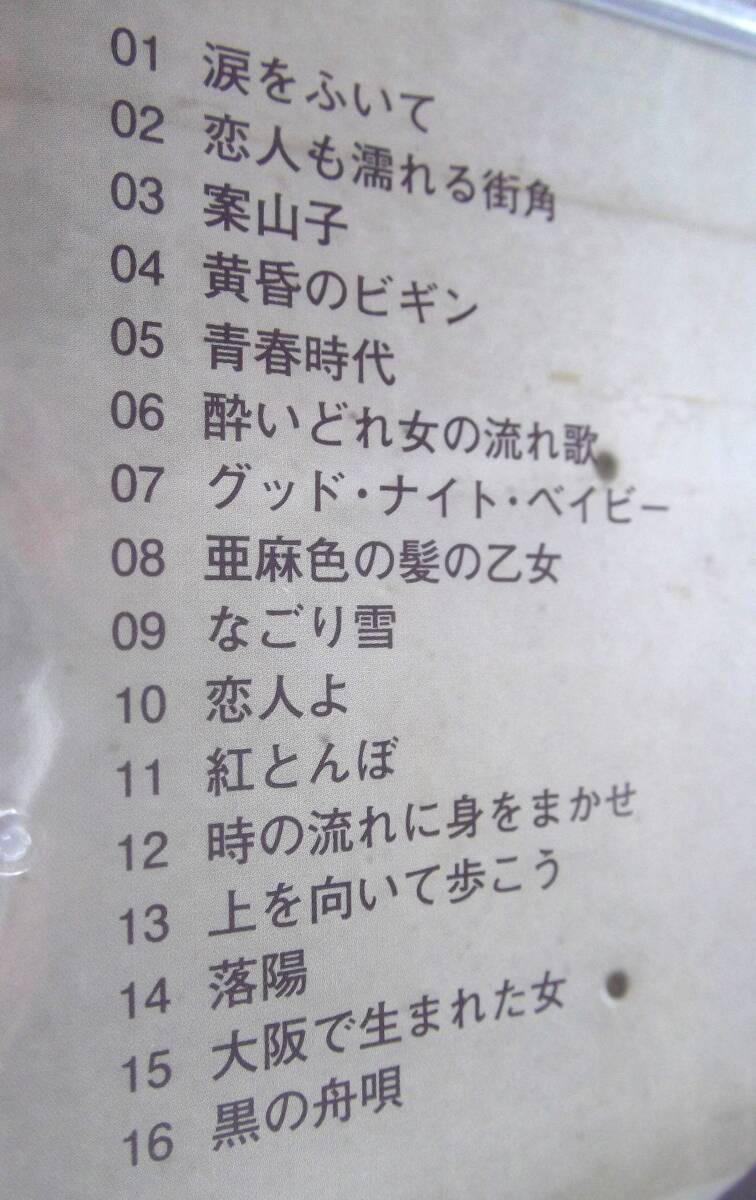 01 涙をふいて
02 恋人も濡れる街角
03 案山子
04 黄昏のビギン
05 青春時代
06 酔いどれ女の流れ歌
07 グッド・ナイト・ベイビー
08 亜麻色の髪の乙女
09 なごり雪
10 恋人よ
11 紅とんぼ
12 時の流れに身をまかせ
13 上を向いて歩こう
14 落陽
15 大阪で生まれた女
16 黒の舟唄